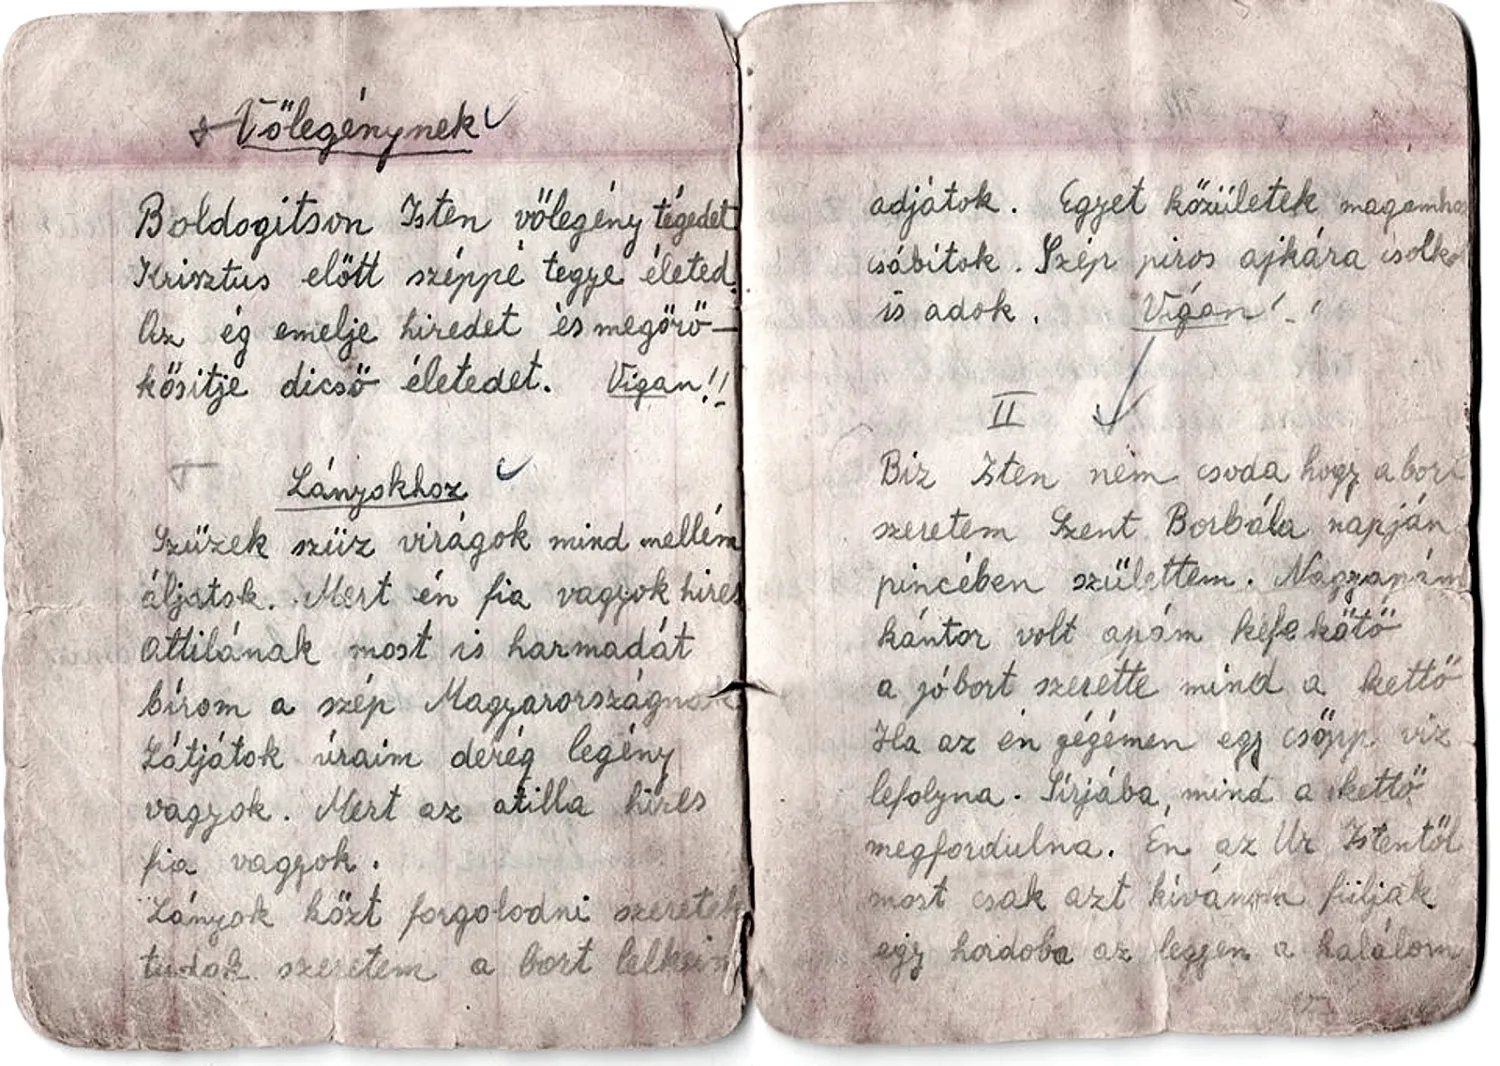 Vőlegénynek
Boldogitson Isten vőlegény tégedet
Krisztus előtt széppé tegye életed.
Az ég emelje hiredet és megörö-
kősitje dicső életedet. Vigan!!
Lányokhoz
Szüzek szüz virágok mind mellém
áljatok. Mert én fia vagyok hires
Attilának most is harmadát
bírom a szép Magyarországnak
Látjátok úraim derég legény
vagyok. Mert az atilla hires
fia vagyok.
Lányok közt forgolodni szeretek
tudok szeretem a bort
adjátok. Egyet közületek magamho
csábitok. Szép piros ajkára csolko
is adok. Vígan!
II
Biz Isten nem csoda hogy a bort
szeretem Szent Borbála napján
pincében születtem. Nagyapám
kántor volt apám kéfe kötő
a jóbort szerette mind a kettő
Ha az én gégémen egy csöpp viz
lefolyna. Sírjába, mind a kettő
megfordulna. Én az Ur Istentől
most csak azt kívánom fúljak
egy hordoba az legyen a halálom